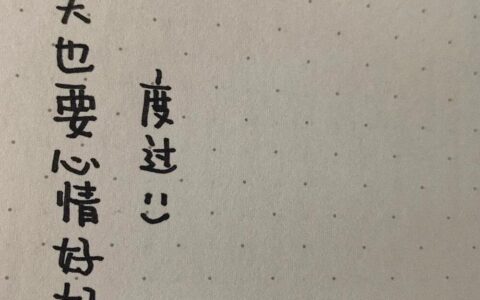 天也要心情好好
度过:)